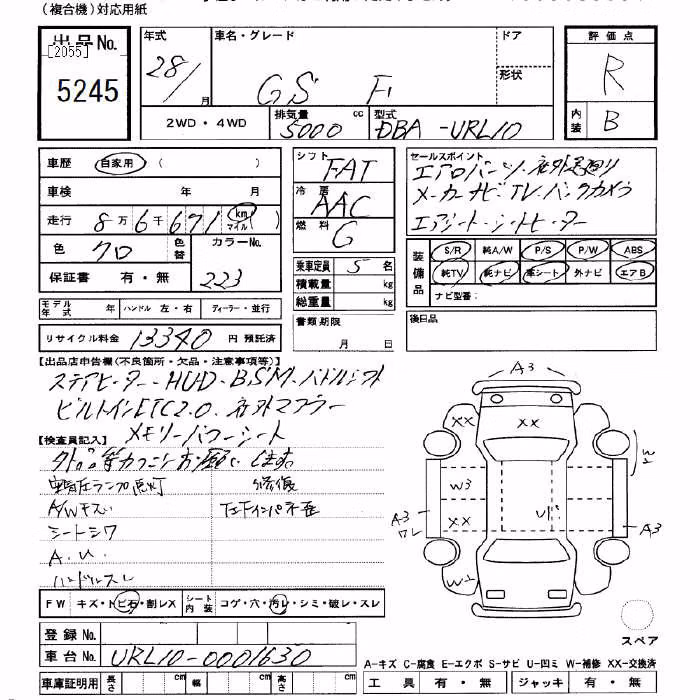 (複合機)対応用紙
出品No.
[2055]
5245
年式
28/
月
車名・グレード
GS F
ドア
形状
評価点
R
内装
B
2WD・4WD
排気量
cc
5000
型式
DBA-URL10
車歴
自家用
( )
車検
年 月
走行
8万6千671
km
マイル
( )
色
クロ
色替
カラーNo.
223
保証書
有・無
モデル年式
年
ハンドル 左・右
ディーラー・並行
リサイクル料金
13340
円 預託済
シフト
FAT
冷房
AAC
燃料
G
乗車定員
5
名
積載量
kg
総重量
kg
書類期限
月 日
セールスポイント
エアロパーツ 社外足廻り
メーカーナビ・TV・バックカメラ
エアシート・シートヒーター
装備品
S/R
純A/W
P/S
P/W
ABS
純TV
純ナビ
革シート
外ナビ
エアB
ナビ型番:
後日品
【出品店申告欄(不良箇所・欠品・注意事項等)】
ステアヒーター・HUD・BSM・パドルシフト
ビルトインETC2.0 社外マフラー
メモリーパワーシート
【検査員記入】
外品等カクニンお願いします。
空気圧ランプ点灯
修復
A/Wキズ
シートシワ
A.U.
ハンドルスレ
FW
キズ・トビ石・割レX
シート内装
コゲ・穴・汚レ・シミ・破レ・スレ
登録No.
車台No.
URL10-0001630
車庫証明用
長さ
cm
幅
cm
高さ
cm
A3
XX
XX
W2
W3
XX
A3
ワレ
A3
W2
スペア
A-キズ C-腐食 E-エクボ S-サビ U-凹ミ W-補修 XX-交換済
工具
有・無
ジャッキ
有・無